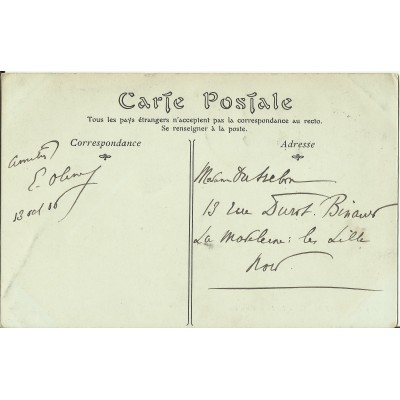 Carte Postale
Tous les pays étrangers n'acceptent pas la correspondance au recto.
Se renseigner à la poste.
Correspondance
Adresse
Amitiés
13 oct 06
Madame
13 rue
La Madeleine: les Lille
Nord